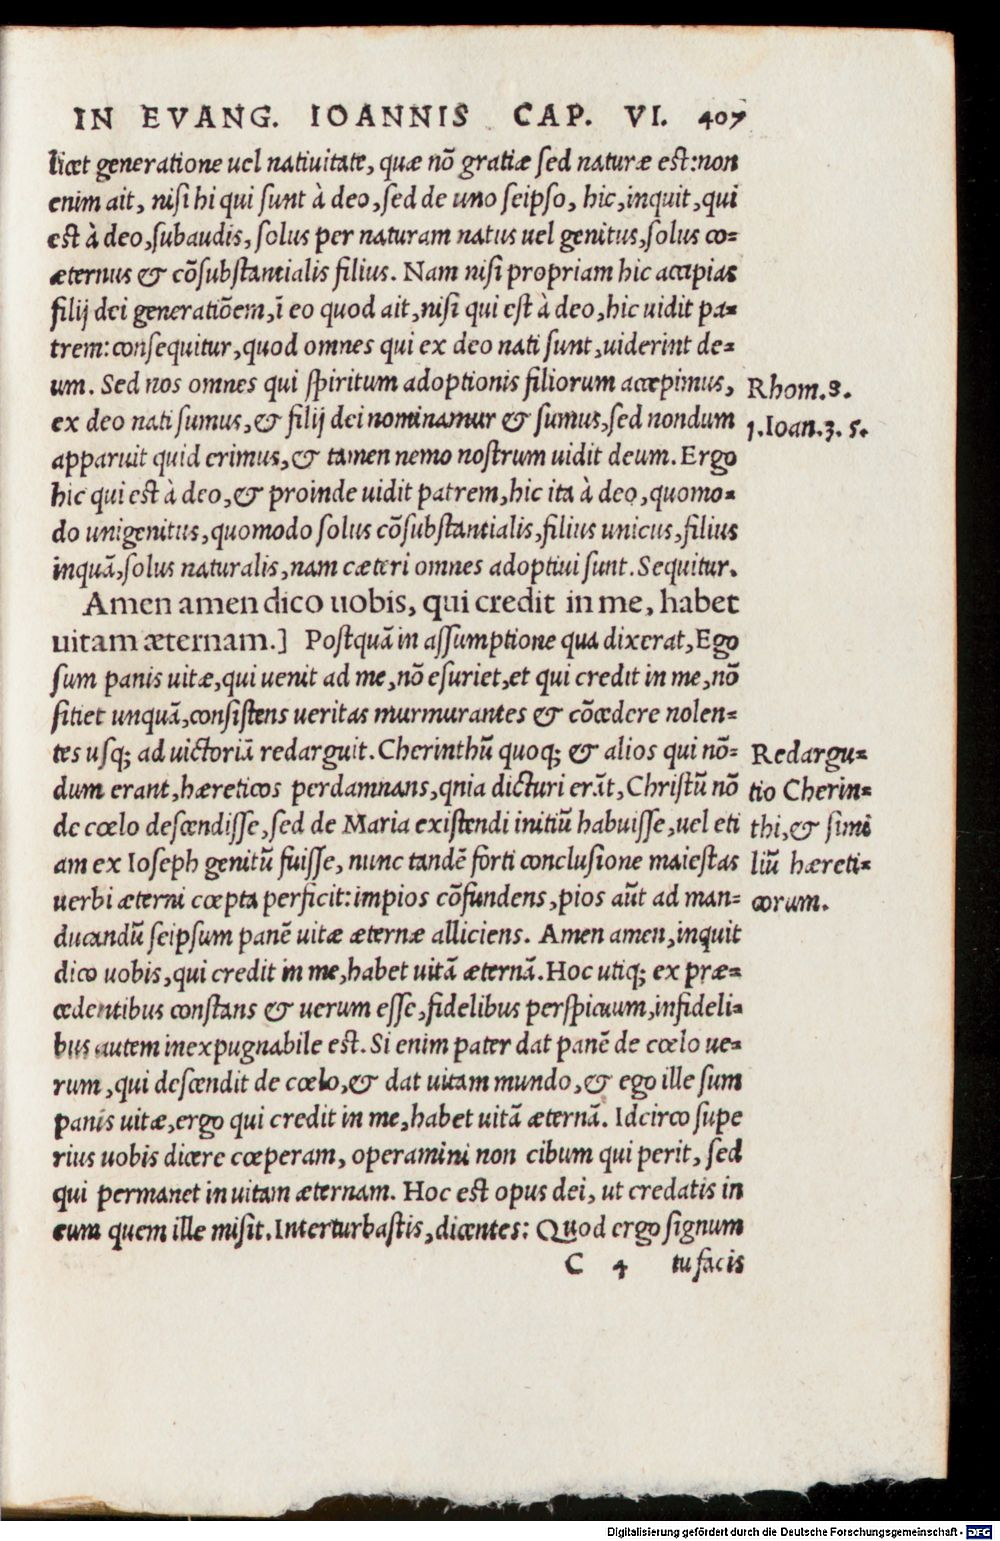 IN EVANG. IOANNIS CAP. VI. 407
licet generatione uel natiuitate, quæ nõ gratiæ sed naturæ est: non
enim ait, nisi hi qui sunt à deo, sed de uno seipso, hic, inquit, qui
est à deo, subaudis, solus per naturam natus uel genitus, solus co-
æternus & cõsubstantialis filius. Nam nisi propriam hic accipias
filij dei generatiõem, ĩ eo quod ait, nisi qui est à deo, hic uidit pa-
trem: consequitur, quod omnes qui ex deo nati sunt, uiderint de-
um. Sed nos omnes qui spiritum adoptionis filiorum accepimus,
Rhom. 8.
ex deo nati sumus, & filij dei nominamur & sumus, sed nondum
1. Ioan. 3. 5.
apparuit quid erimus, & tamen nemo nostrum uidit deum. Ergo
hic qui est à deo, & proinde uidit patrem, hic ita à deo, quomo-
do unigenitus, quomodo solus cõsubstantialis, filius unicus, filius
inquã, solus naturalis, nam cæteri omnes adoptiui sunt. Sequitur.
Amen amen dico uobis, qui credit in me, habet
uitam æternam.] Postquã in assumptione qua dixerat, Ego
sum panis uitæ, qui uenit ad me, nõ esuriet, et qui credit in me, nõ
sitiet unquã, consistens ueritas murmurantes & cõcedere nolen-
tes usq; ad uictoriã redarguit. Cherinthũ quoq; & alios qui nõ-
Redargu-
dum erant, hæreticos perdamnans, qnia dicturi erãt, Christũ nõ
tio Cherin-
de cœlo descendisse, sed de Maria existendi initiũ habuisse, uel eti
thi, & simi
am ex Ioseph genitũ fuisse, nunc tandẽ forti conclusione maiestas
liũ hæreti-
uerbi æterni cœpta perficit: impios cõfundens, pios aũt ad man-
corum.
ducandũ seipsum panẽ uitæ æternæ alliciens. Amen amen, inquit
dico uobis, qui credit in me, habet uitã æternã. Hoc utiq; ex præ-
cedentibus constans & uerum esse, fidelibus perspicuum, infideli-
bus autem inexpugnabile est. Si enim pater dat panẽ de cœlo ue-
rum, qui descendit de cœlo, & dat uitam mundo, & ego ille sum
panis uitæ, ergo qui credit in me, habet uitã æternã. Idcirco supe
rius uobis dicere cœperam, operamini non cibum qui perit, sed
qui permanet in uitam æternam. Hoc est opus dei, ut credatis in
eum quem ille misit. Interturbastis, dicentes: Quod ergo signum
C 4 tu facis
Digitalisierung gefördert durch die Deutsche Forschungsgemeinschaft - DFG